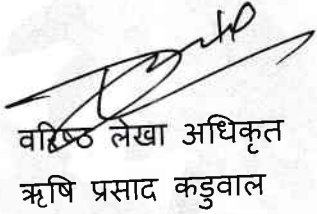 वरिष्ठ लेखा अधिकृत
ऋषि प्रसाद कडुवाल